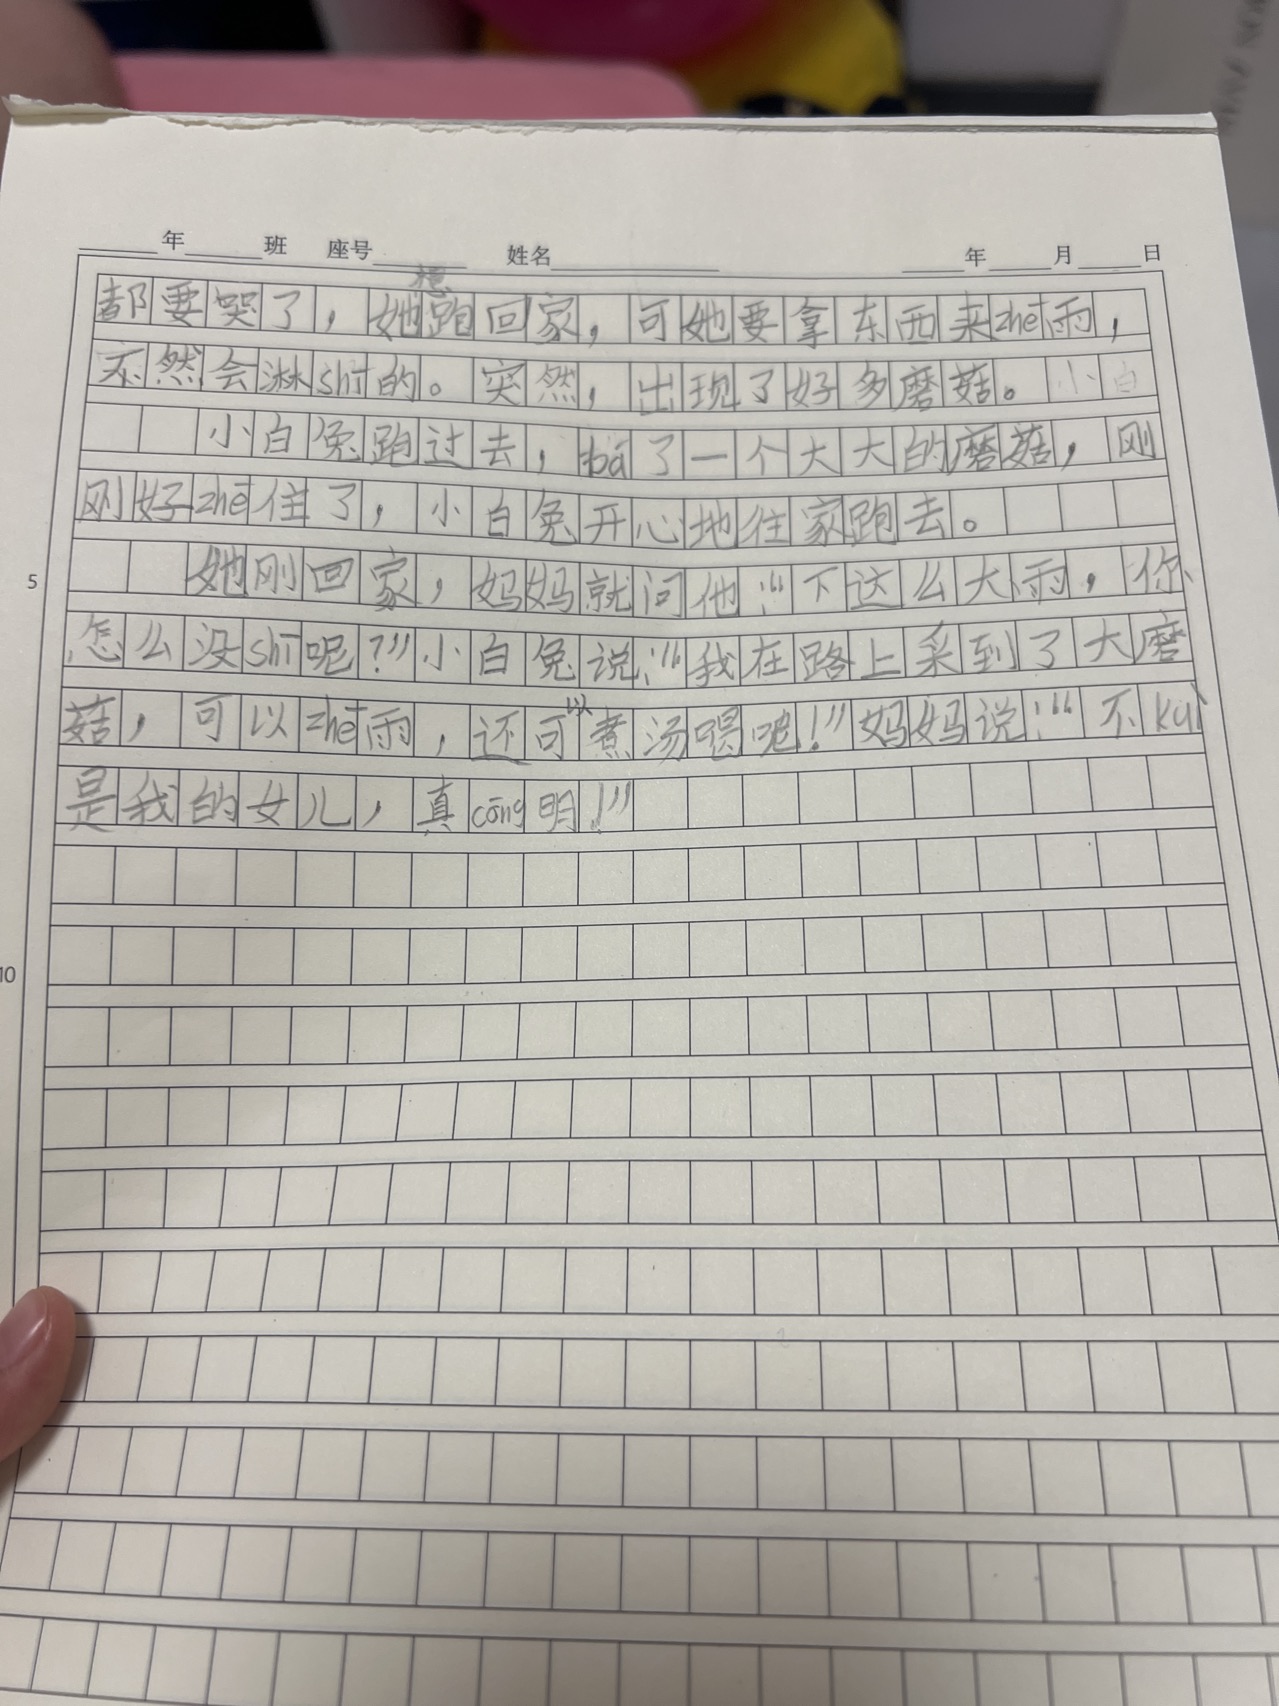 年 班 座号 姓名 年 月 日
都要哭了，她想跑回家，可她要拿东西来zhē雨，
不然会淋shī的。突然，出现了好多磨菇。小白
小白兔跑过去，bá了一个大大的磨菇，刚
刚好zhē住了，小白兔开心地往家跑去。
5
她刚回家，妈妈就问他：“下这么大雨，你
怎么没shī呢？”小白兔说：“我在路上采到了大磨
菇，可以zhē雨，还可以煮汤喝呢！”妈妈说：“不kuì
是我的女儿，真cōng明！”
10